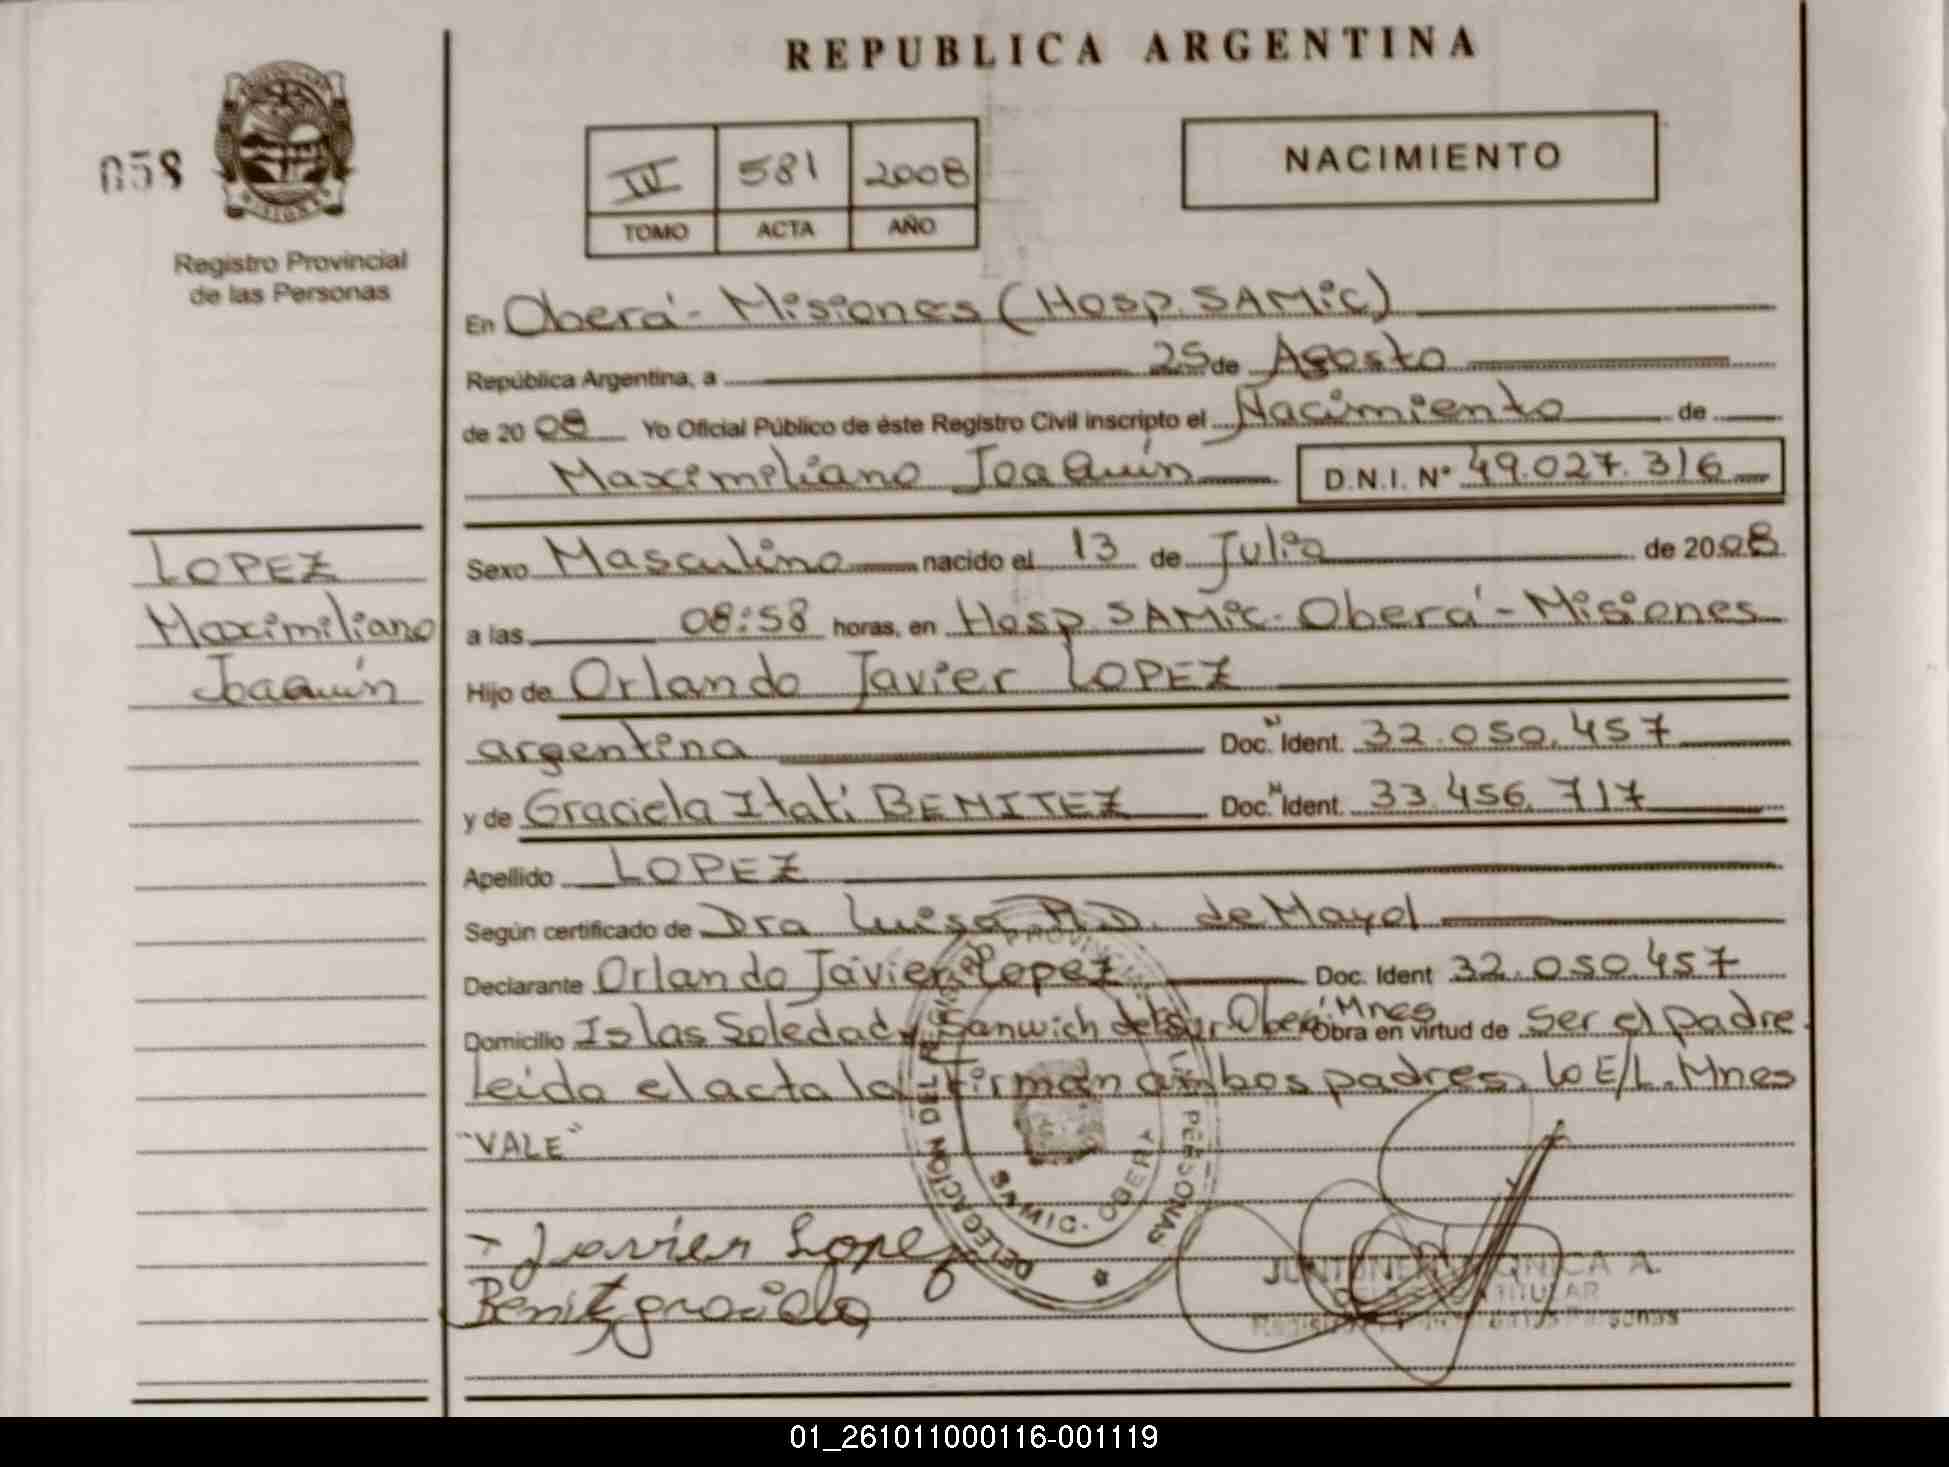 REPUBLICA ARGENTINA
058
IV 581 2008
TOMO ACTA AÑO
NACIMIENTO
MISIONES
Registro Provincial
de las Personas
En Oberá - Misiones (Hosp. SAMic)
República Argentina, a 25 de Agosto
de 2008 Yo Oficial Público de éste Registro Civil inscripto el Nacimiento de
Maximiliano Joaquín D.N.I. N° 49.027.316
LOPEZ
Maximiliano
Joaquín
Sexo Masculino nacido el 13 de Julio de 2008
a las 08:58 horas, en Hosp SAMic - Oberá - Misiones
Hijo de Orlando Javier LOPEZ
argentina Doc. N Ident. 32.050.457
y de Graciela Itatí BENITEZ Doc. N Ident. 33.456.717
Apellido LOPEZ
Según certificado de Dra Luisa M.D. de Mayol
Declarante Orlando Javier Lopez Doc. Ident 32.050.457
Domicilio Islas Soledad y Sanwich del Sur Oberá Mnes Obra en virtud de ser el padre.
Leida el acta la firman ambos padres. lo E/L. Mnes
"VALE"
DELEGACION DEL REGISTRO PROVINCIAL LAS PERSONAS
SAMIC. OBERA
Javier Lopez
Benitez graciela
A.
TITULAR
Personas
01_261011000116-001119